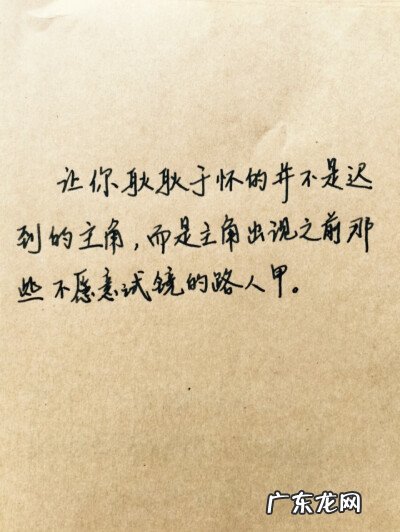 让你耿耿于怀的并不是迟
到的主角，而是主角出现之前那
些不愿意试镜的路人甲。
广东龙网